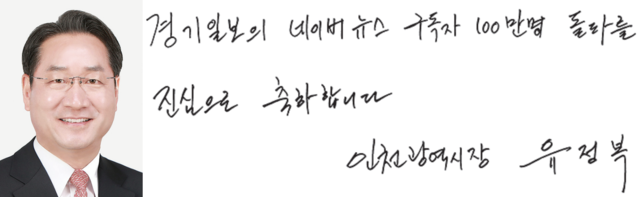 경기일보의 네이버 뉴스 구독자 100만명 돌파를
진심으로 축하합니다
인천광역시장 유정복